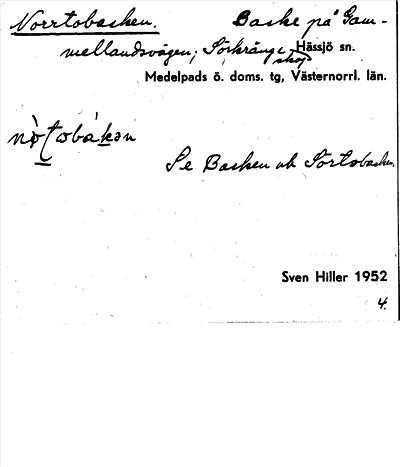 Norrtobacken. Backe på Gam-
mellandsvägen, Sörkrånge skog Hässjö sn.
Medelpads ö. doms. tg, Västernorrl. län.
Se Backen och Sörtobacken.
Sven Hiller 1952
4.